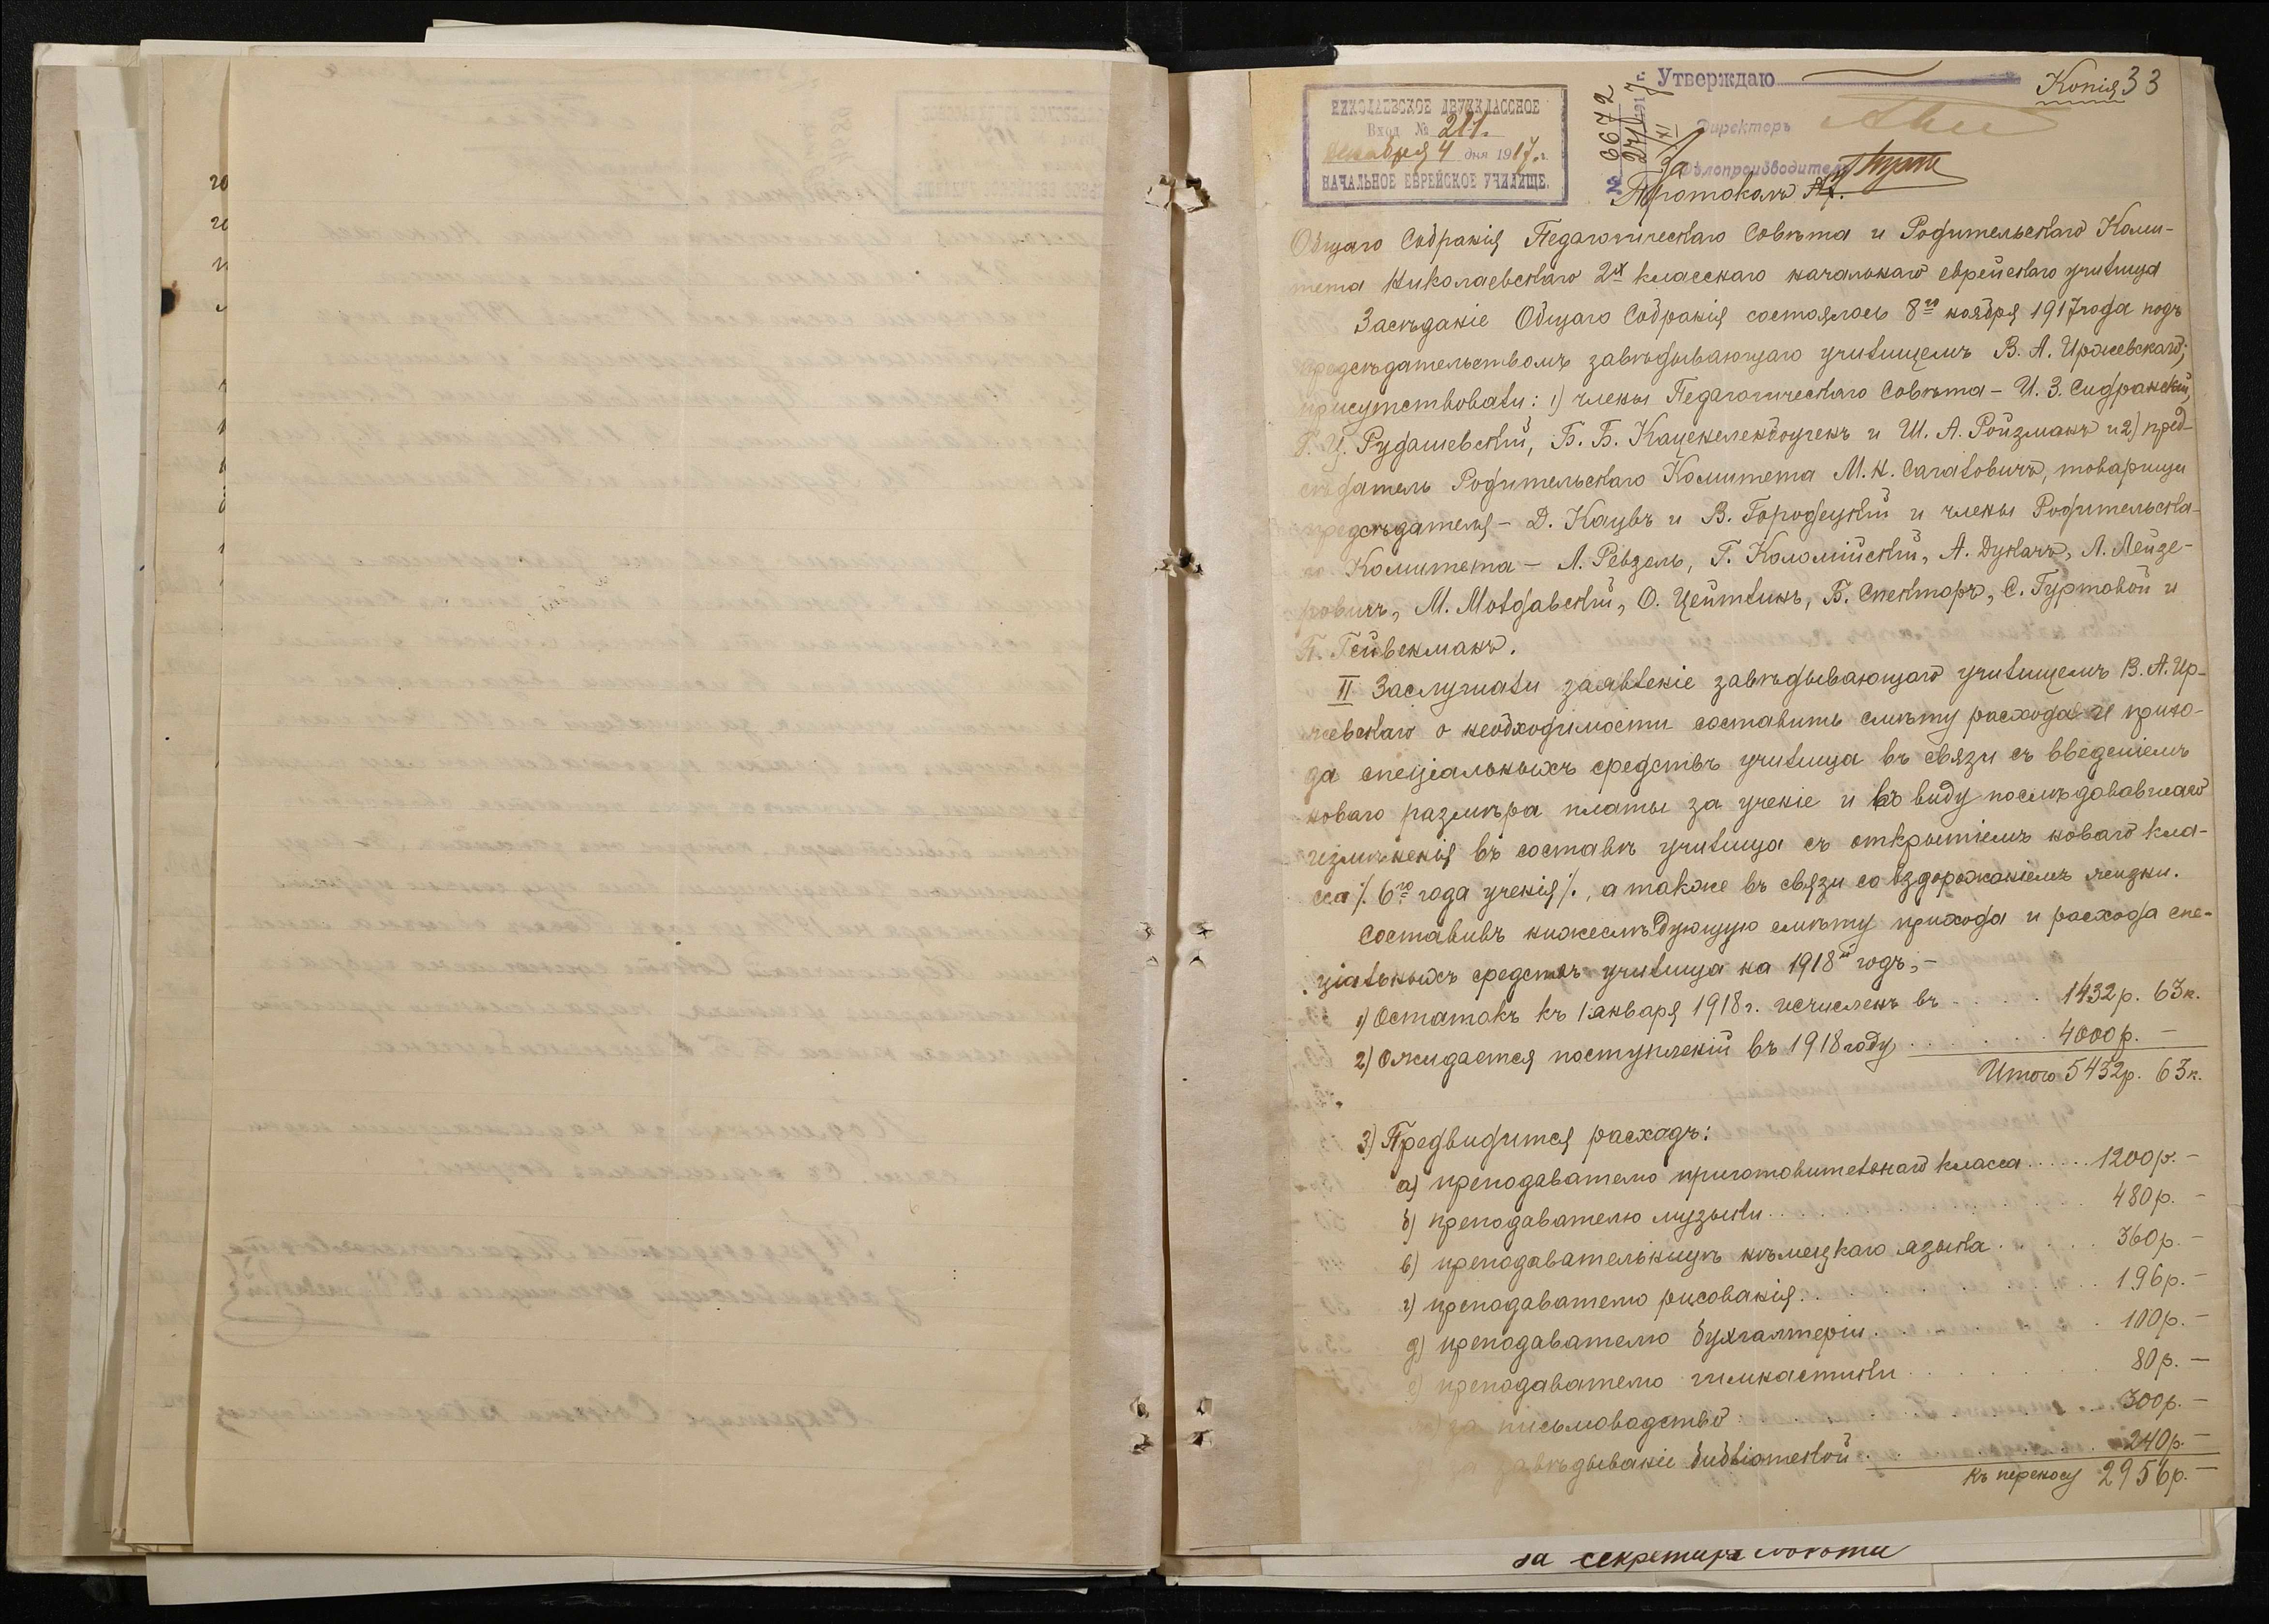 Утверждаю
Копія 33
НИКОЛАЕВСКОЕ ДВУХКЛАССНОЕ
Вход. № 211.
декабря 4 дня 1917 г.
НАЧАЛЬНОЕ ЕВРЕЙСКОЕ УЧИЛИЩЕ.
№ 6672
24/XI 1917 г.
Директоръ
За Дѣлопроизводитель
Протоколъ
Общаго Собранія Педагогическаго Совѣта и Родительскаго Коми-
тета Николаевскаго 2х класснаго начальнаго еврейскаго училища
Засѣданіе Общаго Собранія состоялось 8го ноября 1917 года подъ
предсѣдательствомъ завѣдывающаго училищемъ В. А. Иржевскаго;
присутствовали: 1) члены Педагогическаго Совѣта – И. З. Сидранскій,
Г. Ц. Рудашевскій, Б. Б. Каценеленбогенъ и Ш. А. Ройзманъ и 2) пред-
сѣдатель Родительскаго Комитета М. Н. Сагаловичъ, товарищи
предсѣдателя – Д. Кацвъ и В. Городецкій и члены Родительска-
го Комитета – Л. Ревзель, Г. Коломійскій, А. Дукачъ, Л. Лейзе-
ровичъ, М. Молдавскій, О. Цейтлинъ, Б. Спекторъ, С. Гуртовой и
П. Гейвенманъ.
II Заслушали заявленіе завѣдывающаго училищемъ В. А. Ир-
жевскаго о необходимости составить смѣту расхода и прихо-
да спеціальныхъ средствъ училища въ связи съ введеніемъ
новаго размѣра платы за ученіе и въ виду послѣдовавшаго
измѣненія въ составѣ училища съ открытіемъ новаго кла-
сса /. 6го года ученія /., а также въ связи со вздорожаніемъ жизни.
Составивъ нижеслѣдующую смѣту прихода и расхода спе-
ціальныхъ средствъ училища на 1918й годъ, –
1) Остатокъ къ 1 января 1918 г. исчисленъ въ . . . . 1432 р. 63 к.
2) Ожидается поступленій въ 1918 году . . . . . . . 4000 р. –
Итого 5432 р. 63 к.
3) Предвидится расходъ:
а) преподавателю приготовительнаго класса . . . . . 1200 р. –
б) преподавателю музыки . . . . . . . . . . . . 480 р. –
в) преподавательницѣ нѣмецкаго языка . . . . . . 360 р. –
г) преподавателю рисованія . . . . . . . . . . . 196 р. –
д) преподавателю бухгалтеріи . . . . . . . . . . 100 р. –
е) преподавателю гимнастики . . . . . . . . . . 80 р. –
за письмоводство . . . . . . . . . . . . . . 300 р. –
за завѣдываніе библіотекой . . . . . . . . . . 240 р. –
къ переносу 2956 р. –
за секретаря